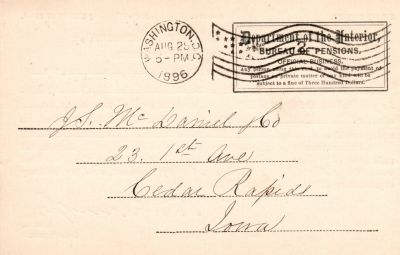 WASHINGTON, D.C.
AUG 25
5-PM
1896
Department of the Interior,
BUREAU OF PENSIONS,
OFFICIAL BUSINESS.
Any person using this card to avoid the payment of
postage on private matter of any kind will be
subject to a fine of Three Hundred Dollars.
J.S. McDaniel & Co
23. 1st Ave
Cedar Rapids
Iowa